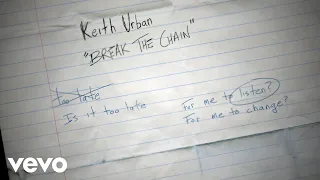 Keith Urban
"BREAK THE CHAIN"
Too late
Is it too late
For me to listen?
For me to change?
vevo